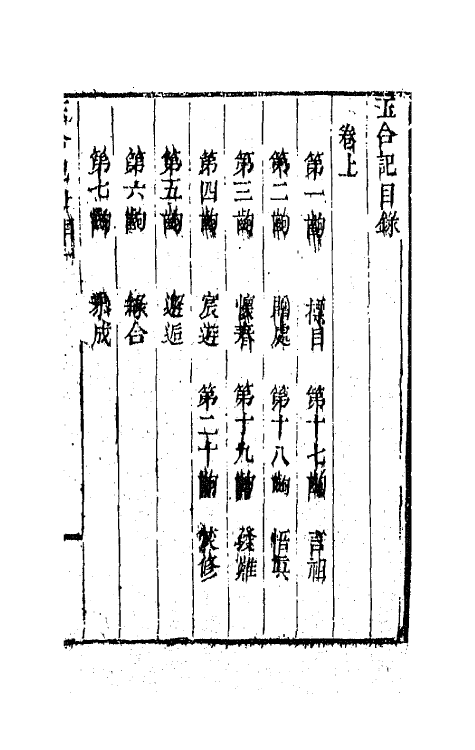 玉合記目錄
卷上
第一齣 標目 第十七齣 言祖
第二齣 贈處 第十八齣 悟真
第三齣 懷春 第十九齣 發難
第四齣 宸遊 第二十齣 焚修
第五齣 邂逅
第六齣 緣合
第七齣 參成